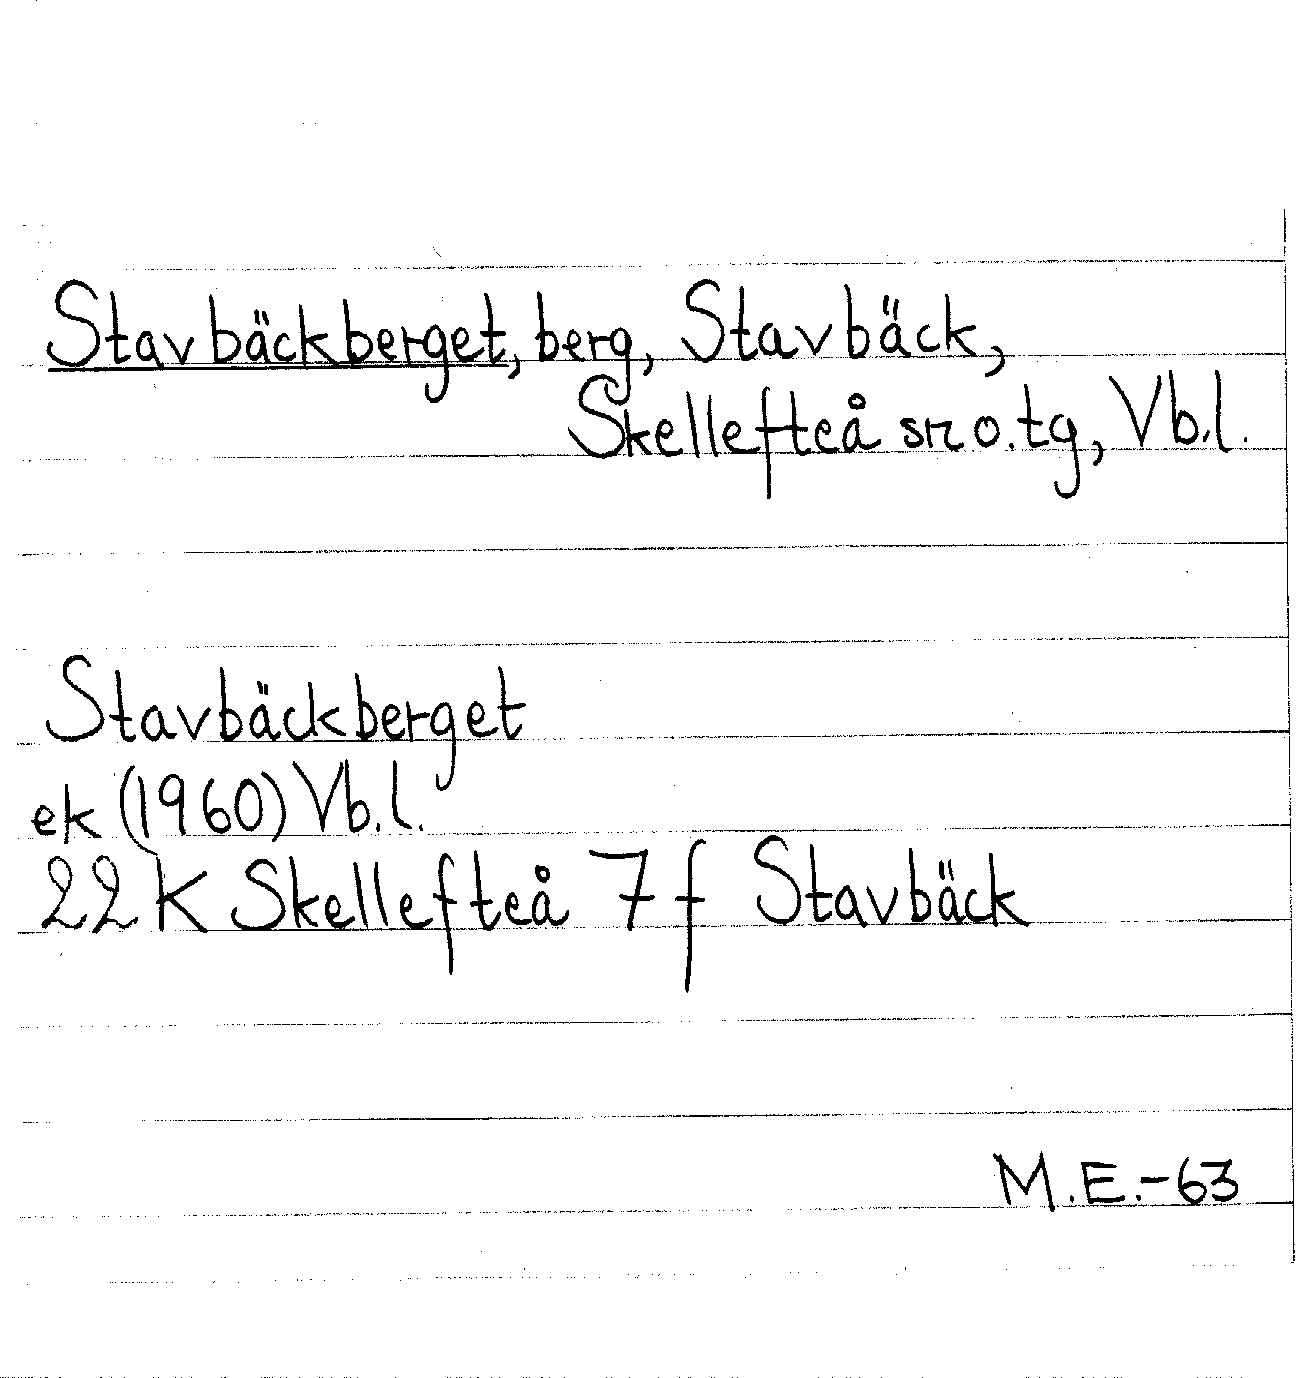 Stavbäckberget, berg, Stavbäck,
Skellefteå sn o. tg, Vb.l.
Stavbäckberget
ek (1960) Vb.l.
22 K Skellefteå 7 f Stavbäck
M.E.-63